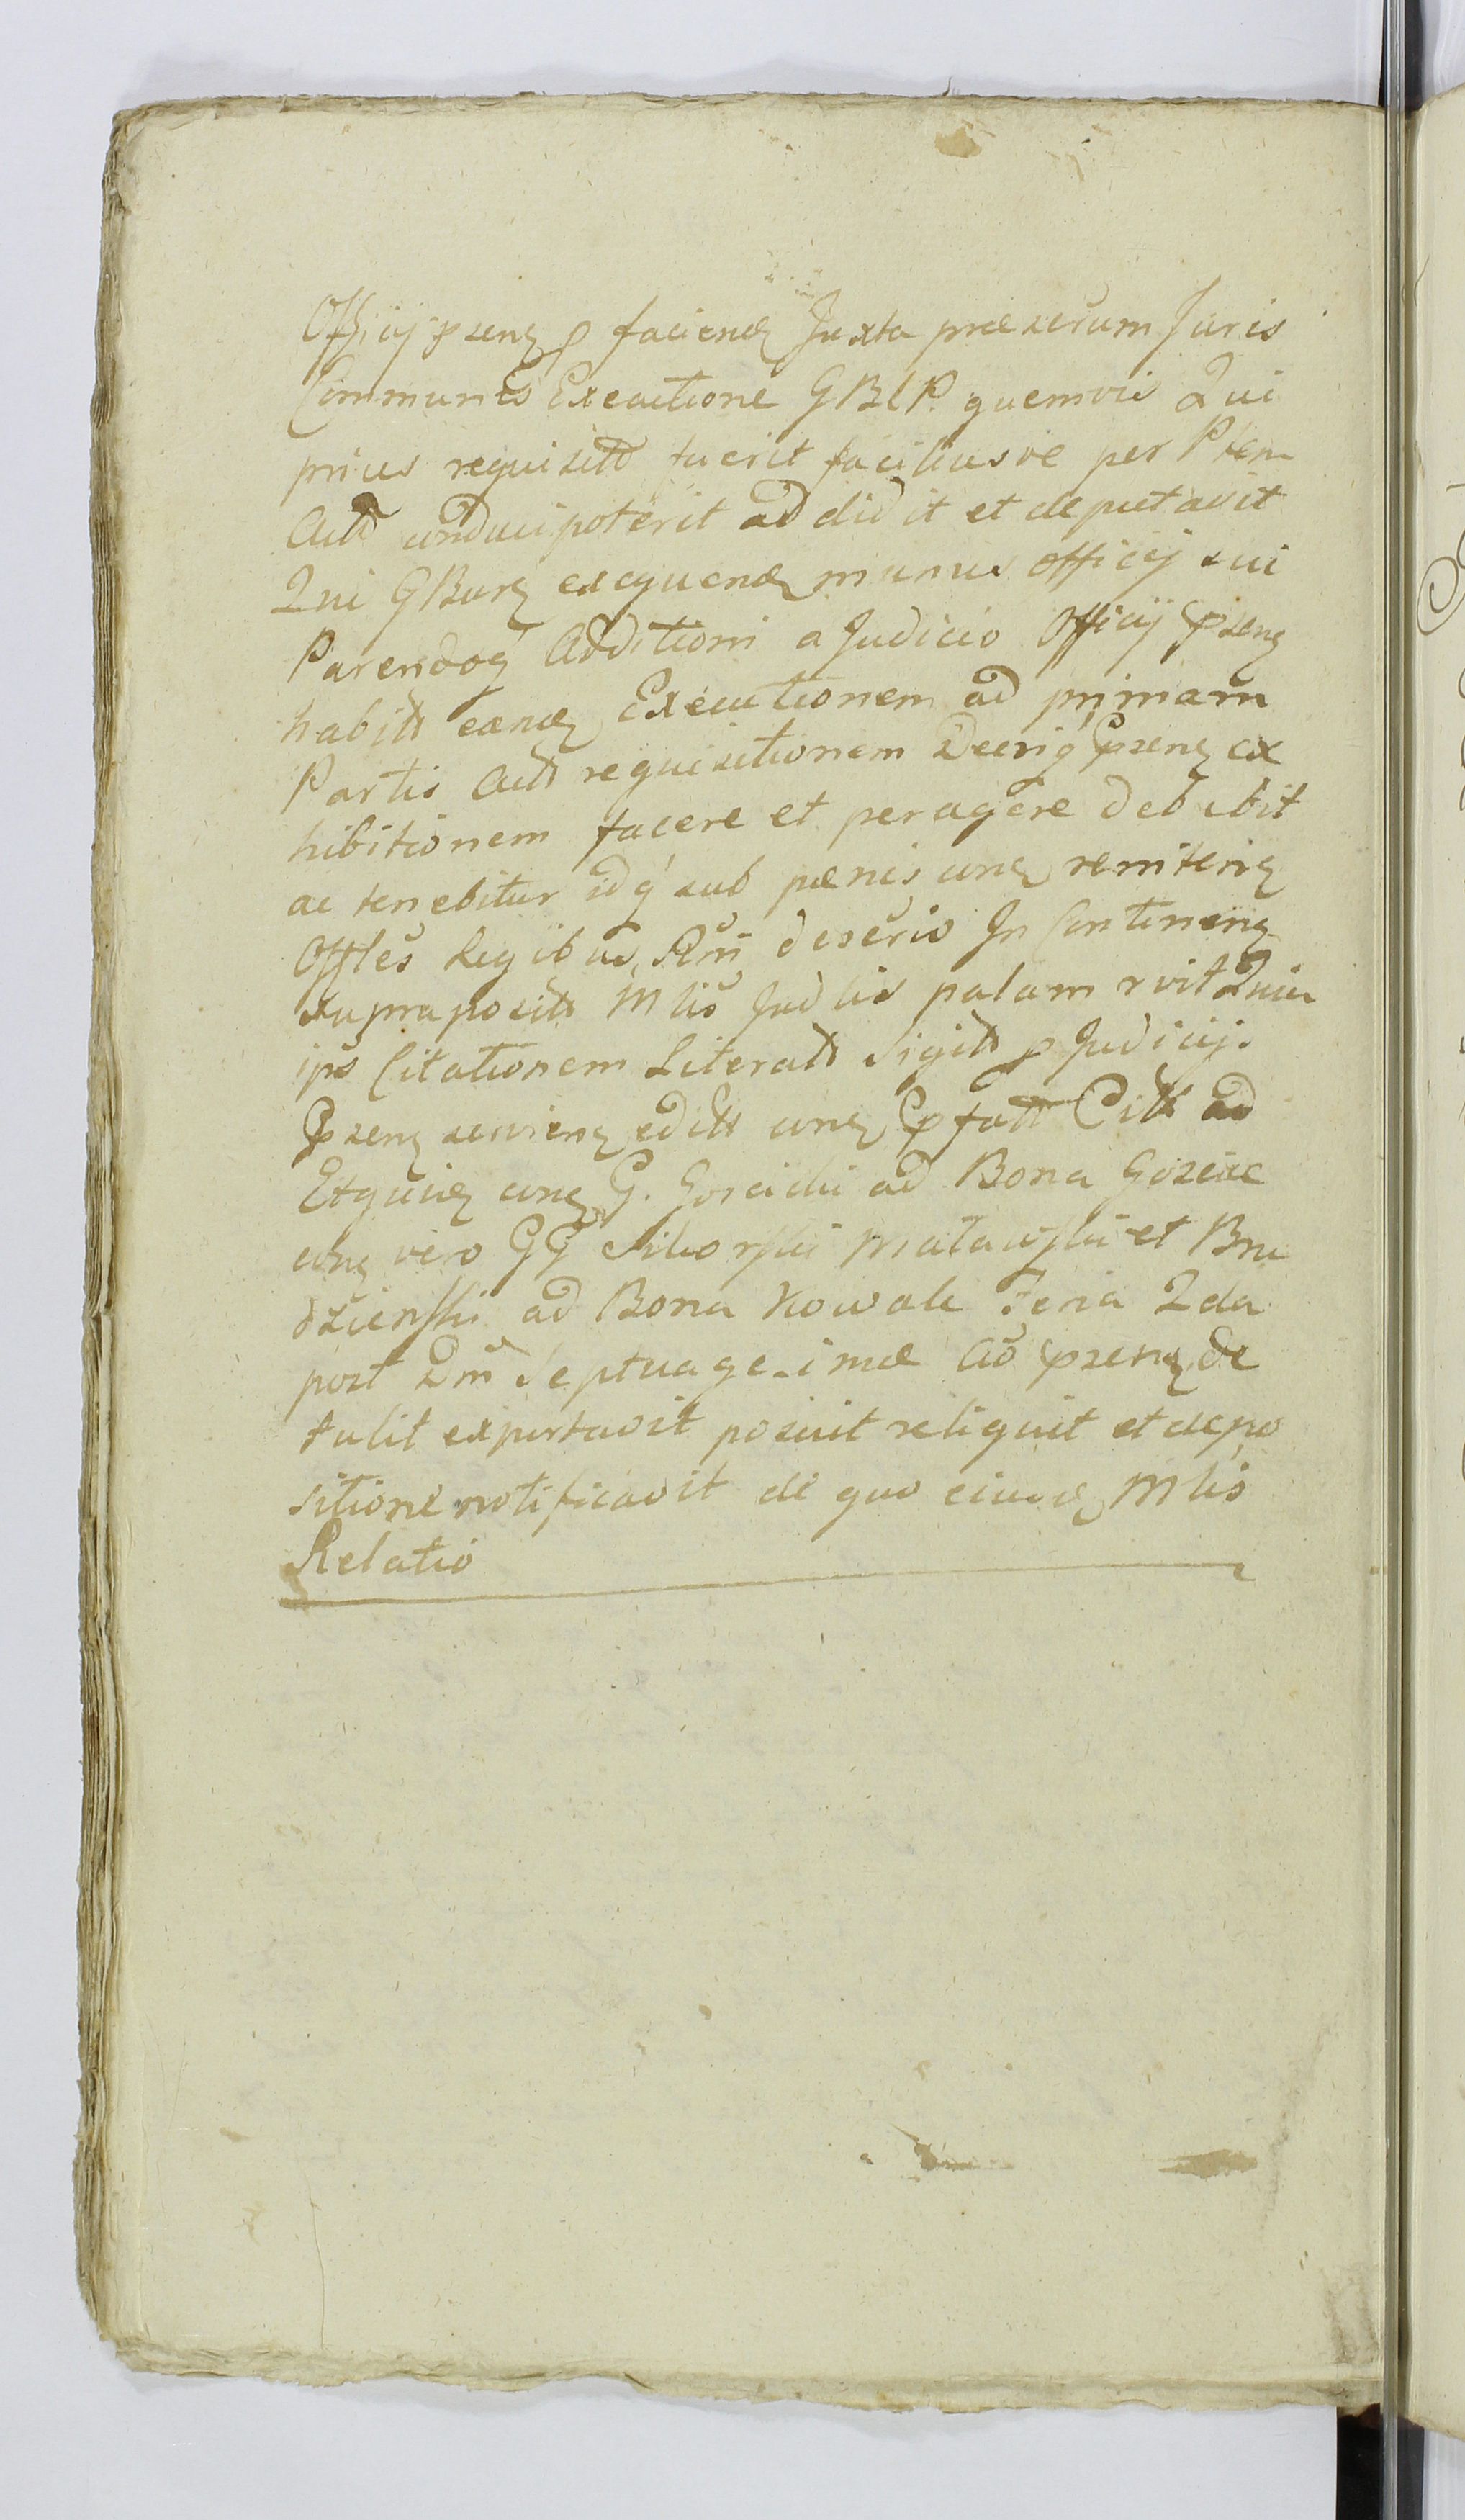 Officij pseng p faciend Juxta præscrum Juris
Communis Executione GBLP. quemvis Qui
prius requisitt fuerit faciliusve per Ptem
Actt conduci poterit addidit et deputavit
Qui GBurg exequend munus Officij sui
Parendoq Additioni a Judicio Officij pseng
habitt eand Executionem ad primam
Partis Actt requisitionem Decriq pseng ex
hibitionem facere et peragere debebit
ac tenebitur idq sub pænis cong remiteng
Offles Legibus Rni descris In Contineng
supraposits Mlis Judlis palam rvit Quia
ips Citationem Literatt Sigitt p Judicij.
pseng servieng editt cong pfatt Citt ad
Etquid cong G. Goscicki ad Bona Goscice
cong vero GG Sikorski Matawski et Bru
dzienski ad Bona Kowale Feria 2da
post Dm̃ Septuagesimæ Ao pseng de
tulit exportavit posuit reliquit et depo
sitione notificavit de quo eiusd Mlis
Relatio